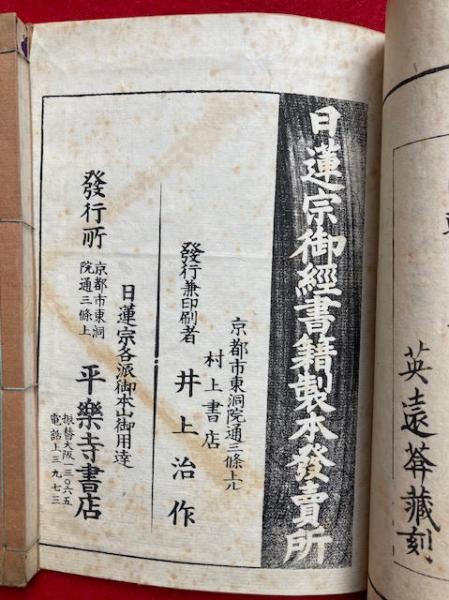 英遠莾藏刻
日蓮宗御經書籍製本發賣所
京都市東洞院通三條上ル
村上書店
發行兼印刷者 井上治作
日蓮宗各派御本山御用達
發行所
京都市東洞
院通三條上
平樂寺書店
振替大阪一三〇六五
電話上三九七三